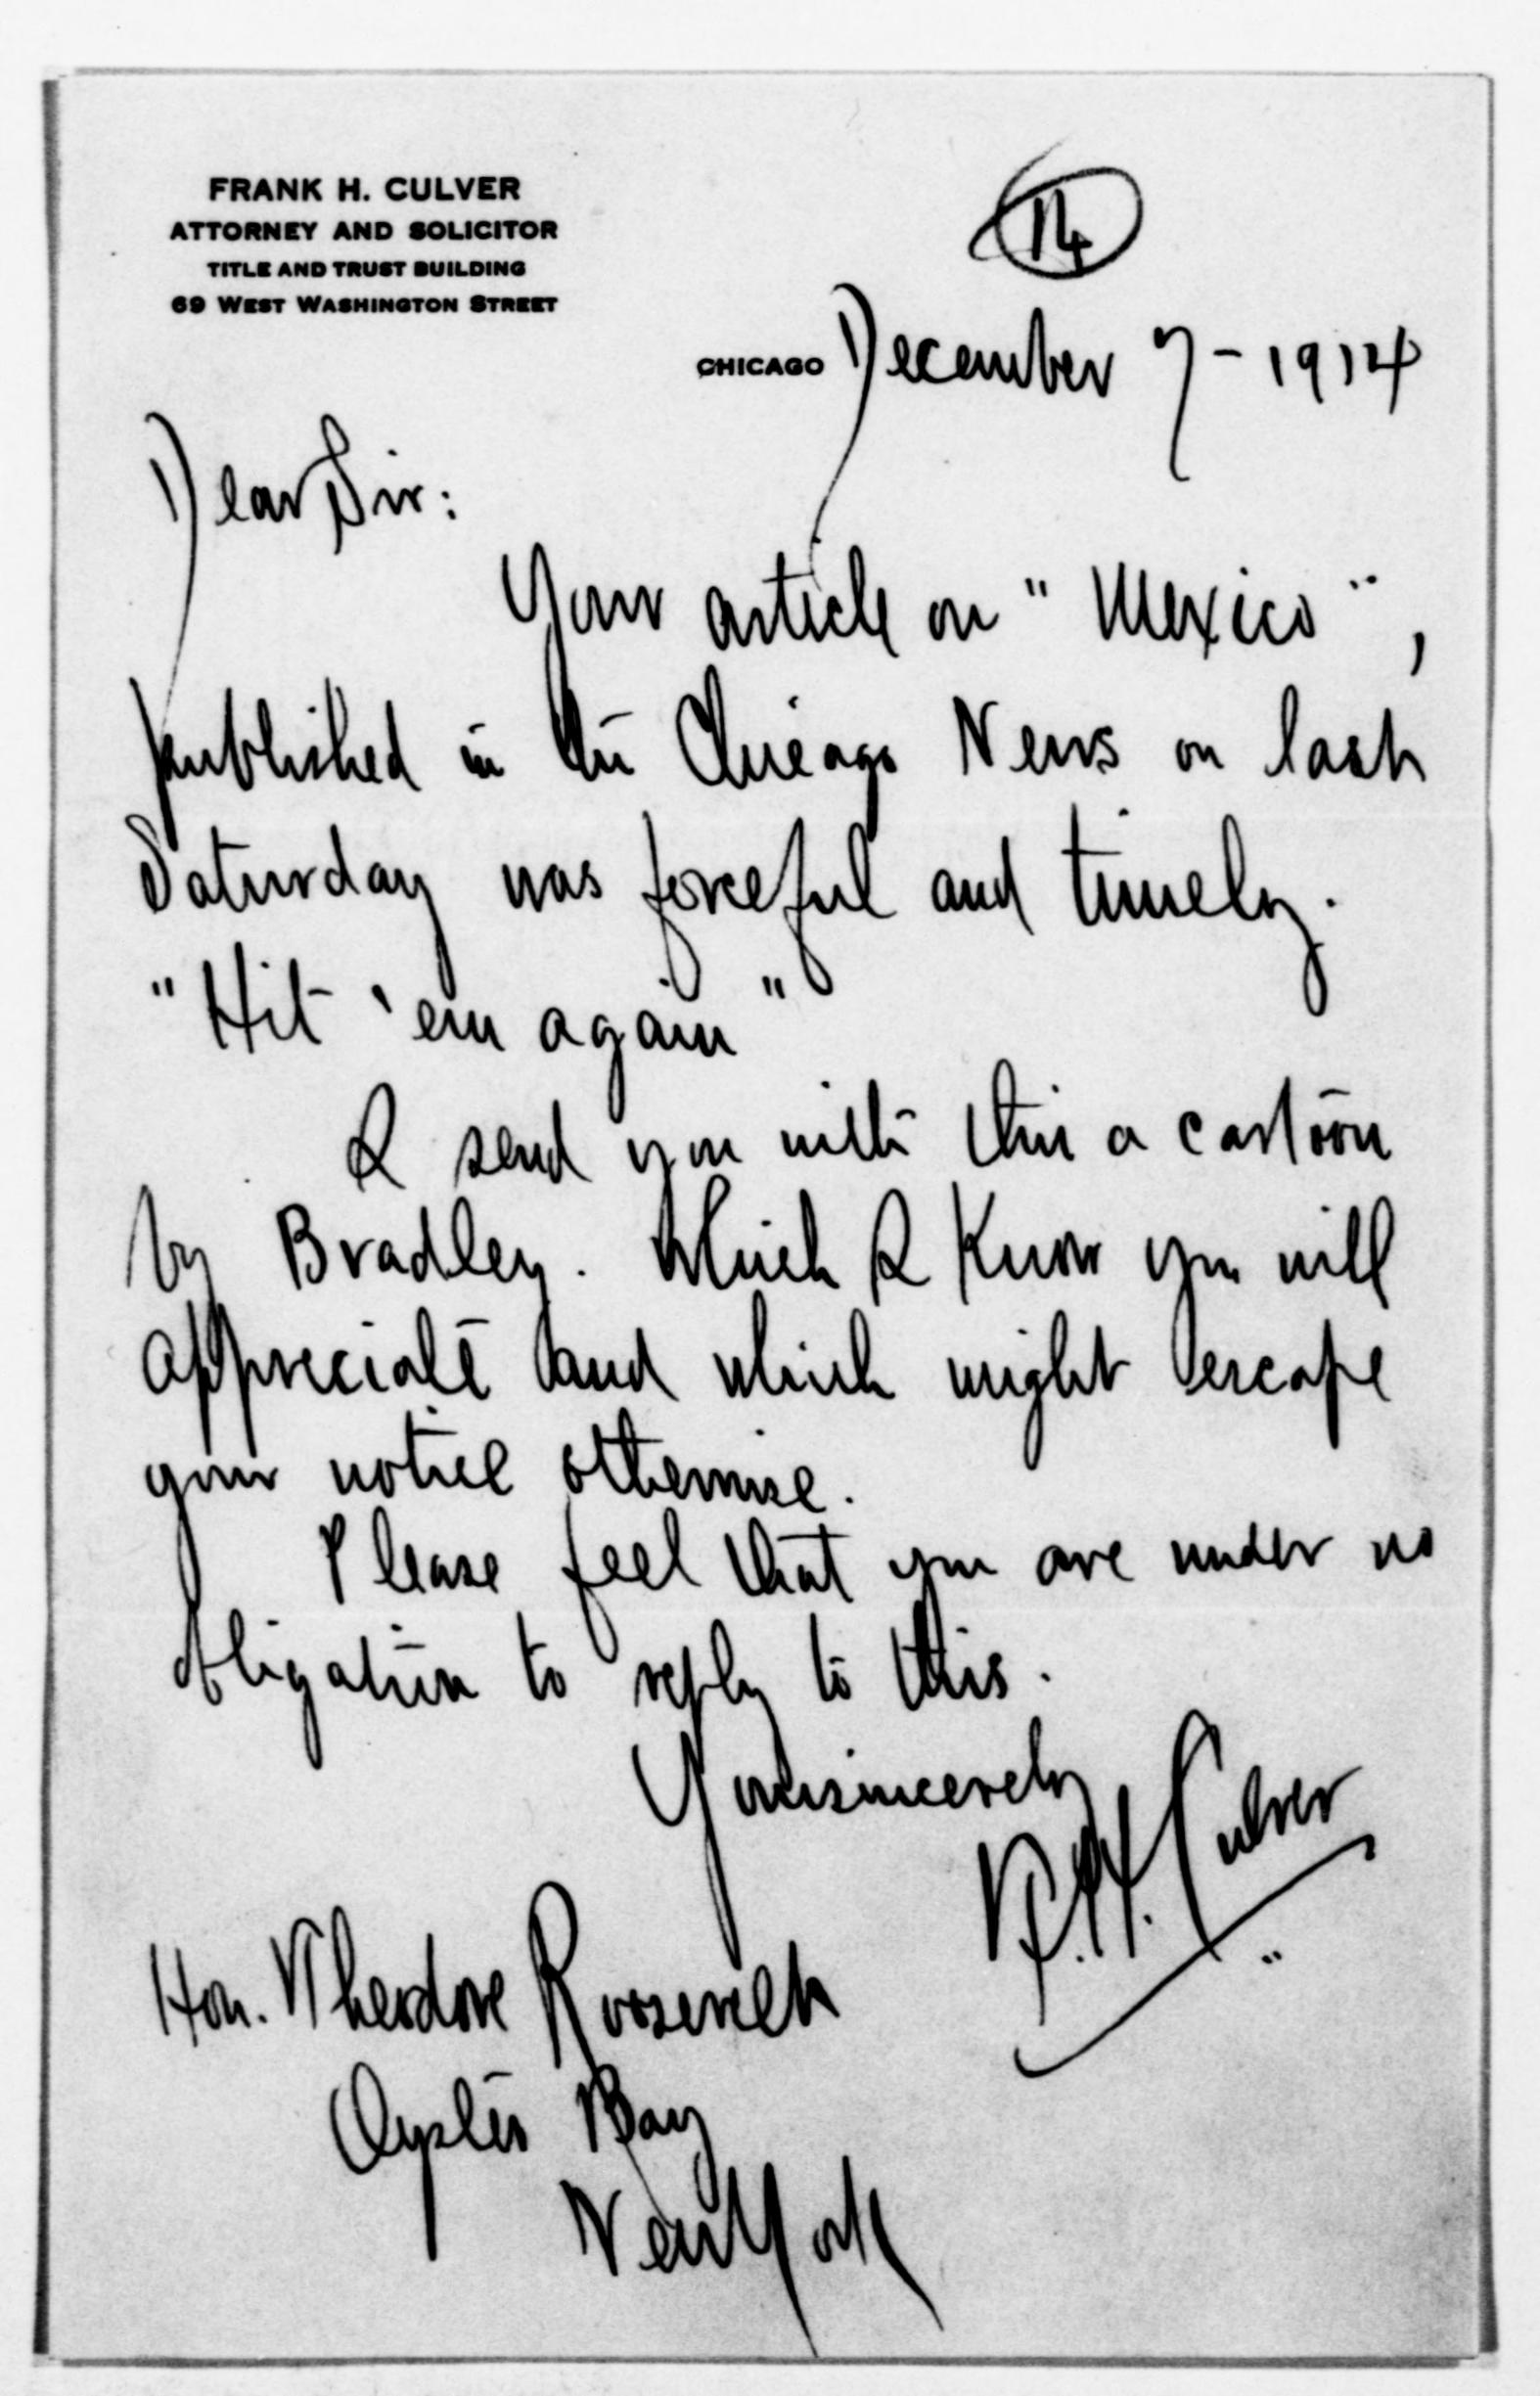 FRANK H. CULVER
ATTORNEY AND SOLICITOR
TITLE AND TRUST BUILDING
69 WEST WASHINGTON STREET
14
CHICAGO December 7 - 1914
Dear Sir:
Your article on "Mexico",
published in the Chicago News on last
Saturday was forceful and timely.
"Hit 'em again"
I send you with this a cartoon
by Bradley. Which I know you will
appreciate and which might escape
your notice otherwise.
Please feel that you are under no
obligation to reply to this.
Yours sincerely
F. H. Culver
Hon. Theodore Roosevelt
Oyster Bay
New York